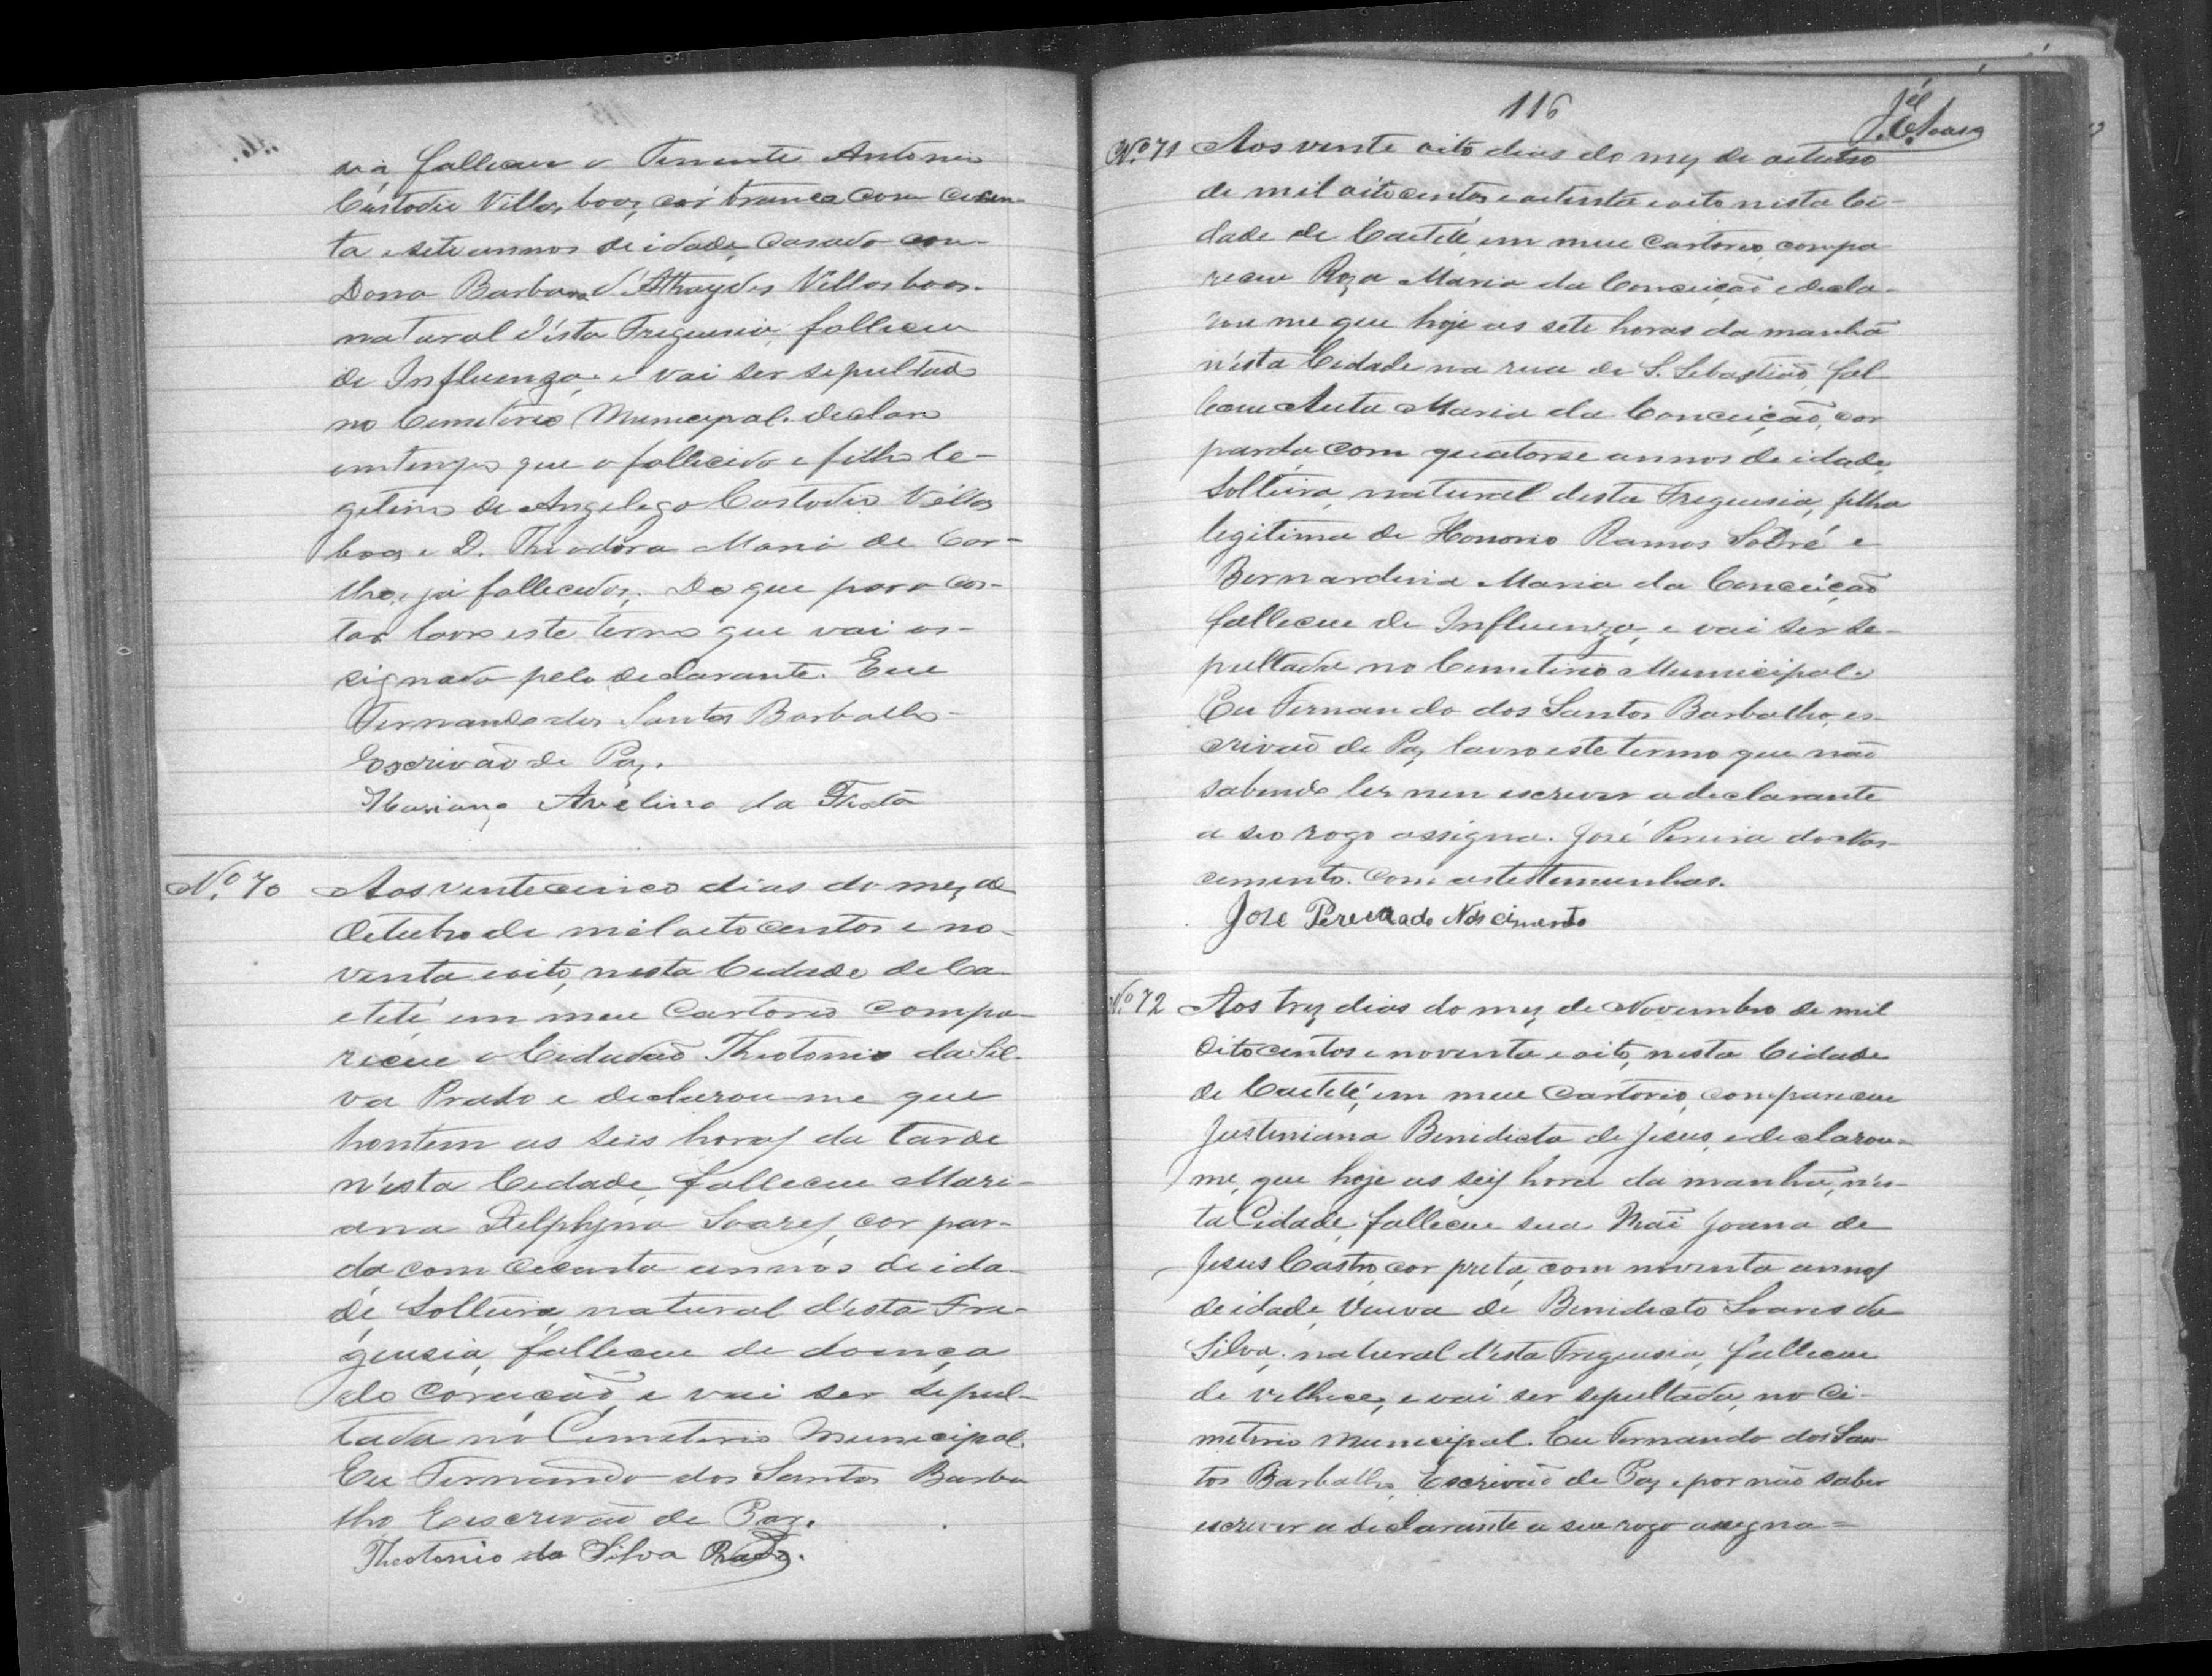 sia falleceu o Tenente Antonio
Custodio Villas boas, côr branca com cecen-
ta e sete annos de idade, Casado com
Dona Barbara d'Athaydes Villas boas.
natural d'ésta Freguesia, falleceu
de Influenza, e vai ser sepultado
no Cemeterio Municipal. declaro
em tempo que o fallecido e filho le-
getimo de Custodio Villas
boas e D. Theodora Maria de Cor-
tho, ja fallecidos. Do que para cos-
tar lavro este termo que vai as-
signado pelo declarante. Eu
Fernando dos Santos Barbalho
Escrivão de Paz.
Mariano Avelino da Frota
Nº. 70 Aos vente cinco dias do mez de
Oitubro de mil oito centos e no-
venta e oito, nesta Cidade de Ca-
etété em meu Cartorio compa-
receu o Cidadão Theotonio da Sil-
va Prado e declarou-me que
hontem as seis horas da tarde
n'ésta Cidade, falleceu Mari-
ana Delphyna Soares, cor par-
da com cecenta annos de ida-
de Solteira, natural d'ésta Fre-
guesia, falleceu de doença
do coração, e vai ser sepul-
tada no Cemeterio Municipal.
Eu Fernando dos Santos Barba
lho Eescrivão de Paz.
Theotonio da Silva Prado.
116
Nº 71 Aos vente oito dias do mez de oitubro
de mil oito centos e oitenta e oito nesta Ci-
dade de Caetété, em meu Cartorio, compa-
receu Roza Maria da Conceição e decla-
rou me que hoje as sete horas da manhã
n'ésta Cidade na rua de S. Sebastião, fal-
leceu Auta Maria da Conceição, cor
parda com quatorse annos de idade,
Solteira, natural desta Freguesia, filha
legitima de Honorio Ramos Sodré e
Bernardina Maria da Conceição
falleceu de Influenza, e vai ser se-
pultada no Cemeterio Municipal.
Eu Fernando dos Santos Barbalho, es-
crivão de Paz lavro este termo que não
sabendo ler nem escrever a declarante
a seo rogo assigna. José Pereira do Nas-
cimento. Com as testemunhas.
Jose Pereira do Nascimento
Nº 72 Aos trez dias do mez de Novembro de mil
Oito centos e noventa e oito, nesta Cidade
de Caetété, em meu Cartorio, compareceu
Justiniana Benidicta de Jesus, e declarou-
me, que hoje as seis hora da manhã, n'és-
ta Cidade, falleceu sua Mãi Joana de
Jesus Castro, cor preta, com noventa annos
de idade, Viuva de Benidicto Soares da
Silva, natural d'ésta Freguesia, falleceu
de velhice, e vai ser sepultada, no Ci-
meterio Municipal. Eu Fernando dos San-
tos Barbalho, Escrivão de Paz e por não saber
escrever a declarante a seu rogo assigna=